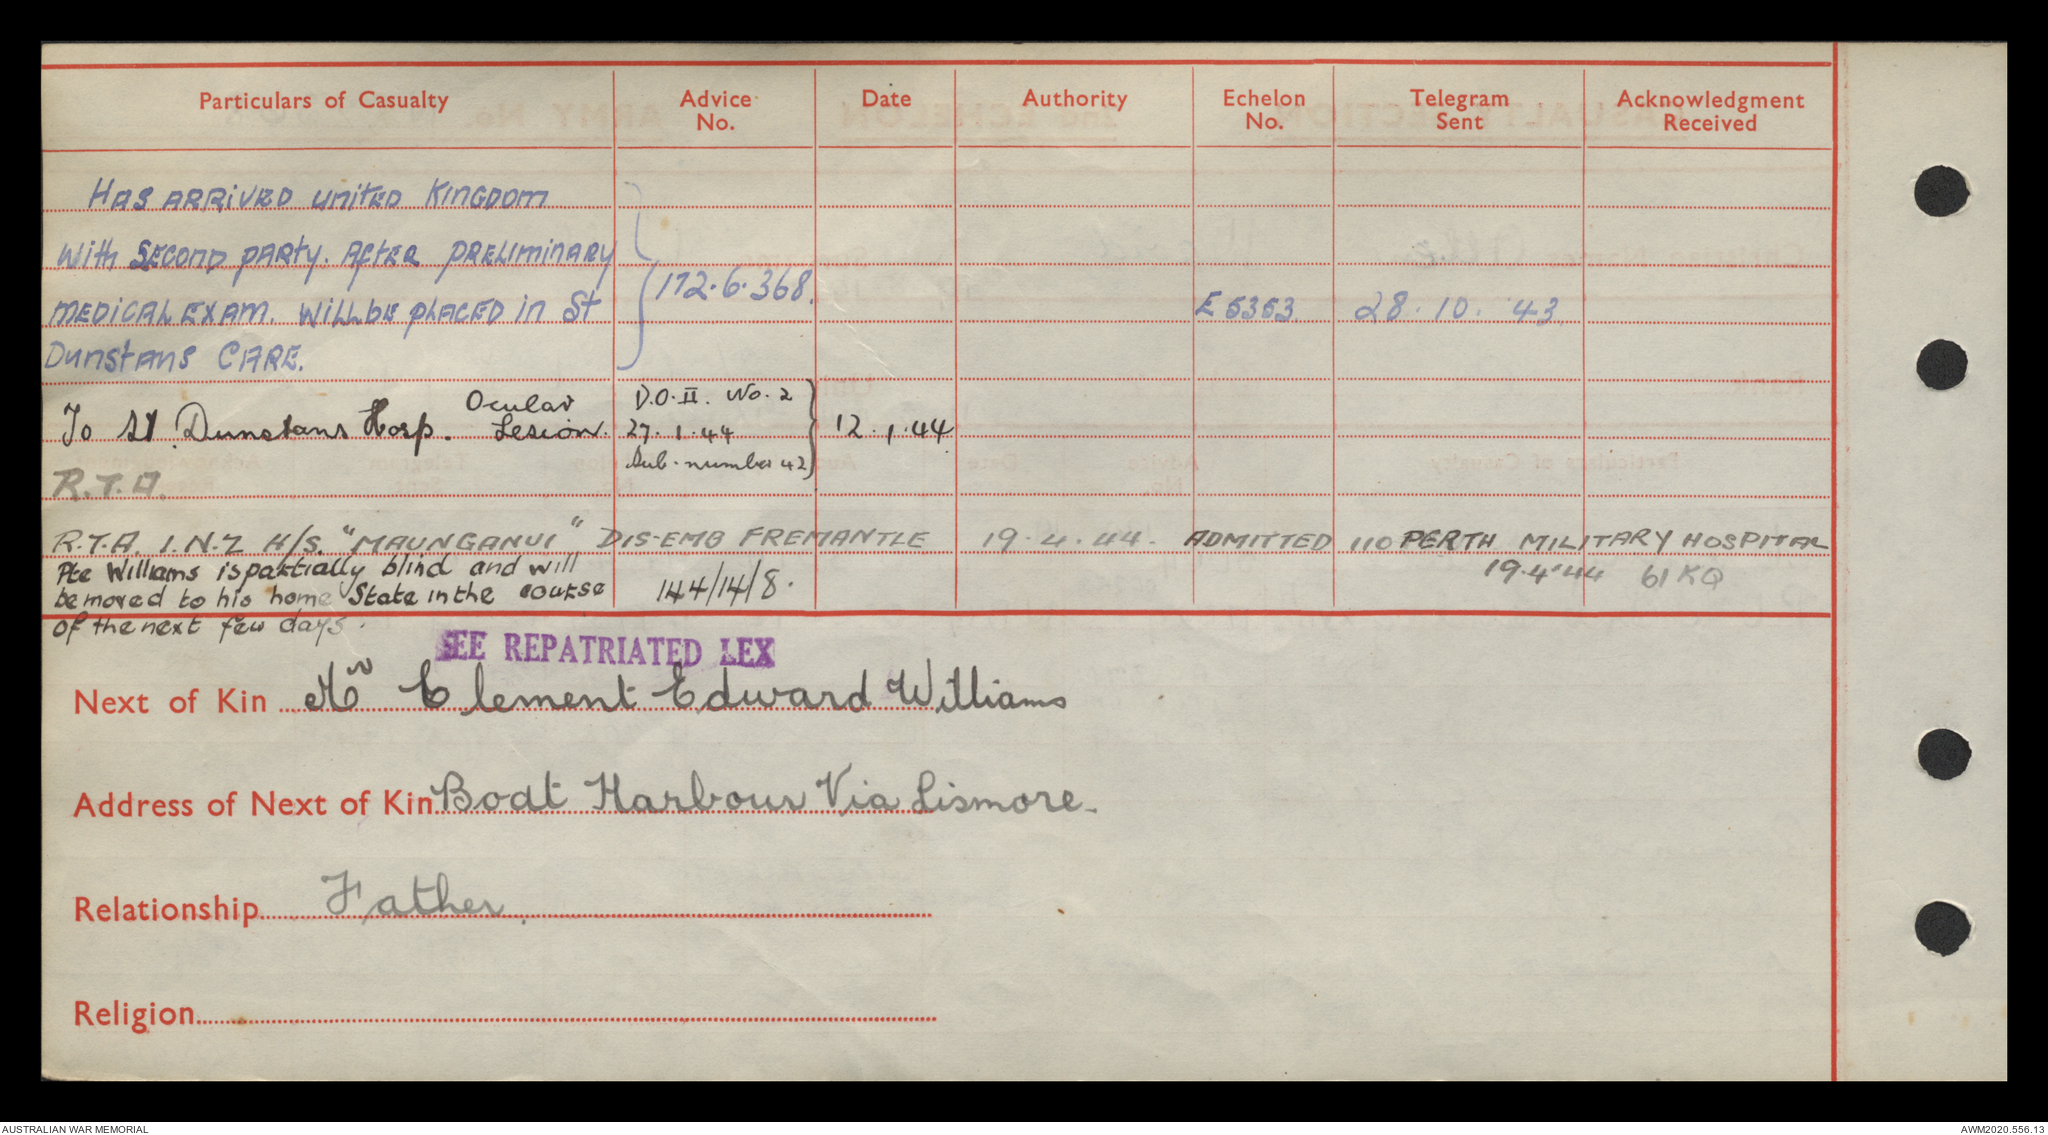 Particulars of Casualty Advice No. Date Authority Echelon No. Telegram Sent Acknowledgment Received
HAS ARRIVED UNITED KINGDOM
WITH SECOND PARTY. AFTER PRELIMINARY
MEDICAL EXAM. WILL BE PLACED IN ST 172.6.368. E 5353 28.10.43
DUNSTANS CARE.
To St Dunstans Hosp. Ocular Lesion. D.O.II. No. 2 27.1.44 Sub-number 42 12.1.44
R.T.A.
R.T.A. 1.N.Z H/S. "MAUNGANUI" DIS-EMB FREMANTLE 19.4.44. ADMITTED 110 PERTH MILITARY HOSPITAL
19.4.44 61KQ
Pte Williams is partially blind and will
be moved to his home State in the course 144/14/8.
of the next few days.
SEE REPATRIATED LEX
Next of Kin Mr Clement Edward Williams
Address of Next of Kin Boat Harbour Via Lismore.
Relationship Father.
Religion
AUSTRALIAN WAR MEMORIAL AWM2020.556.13